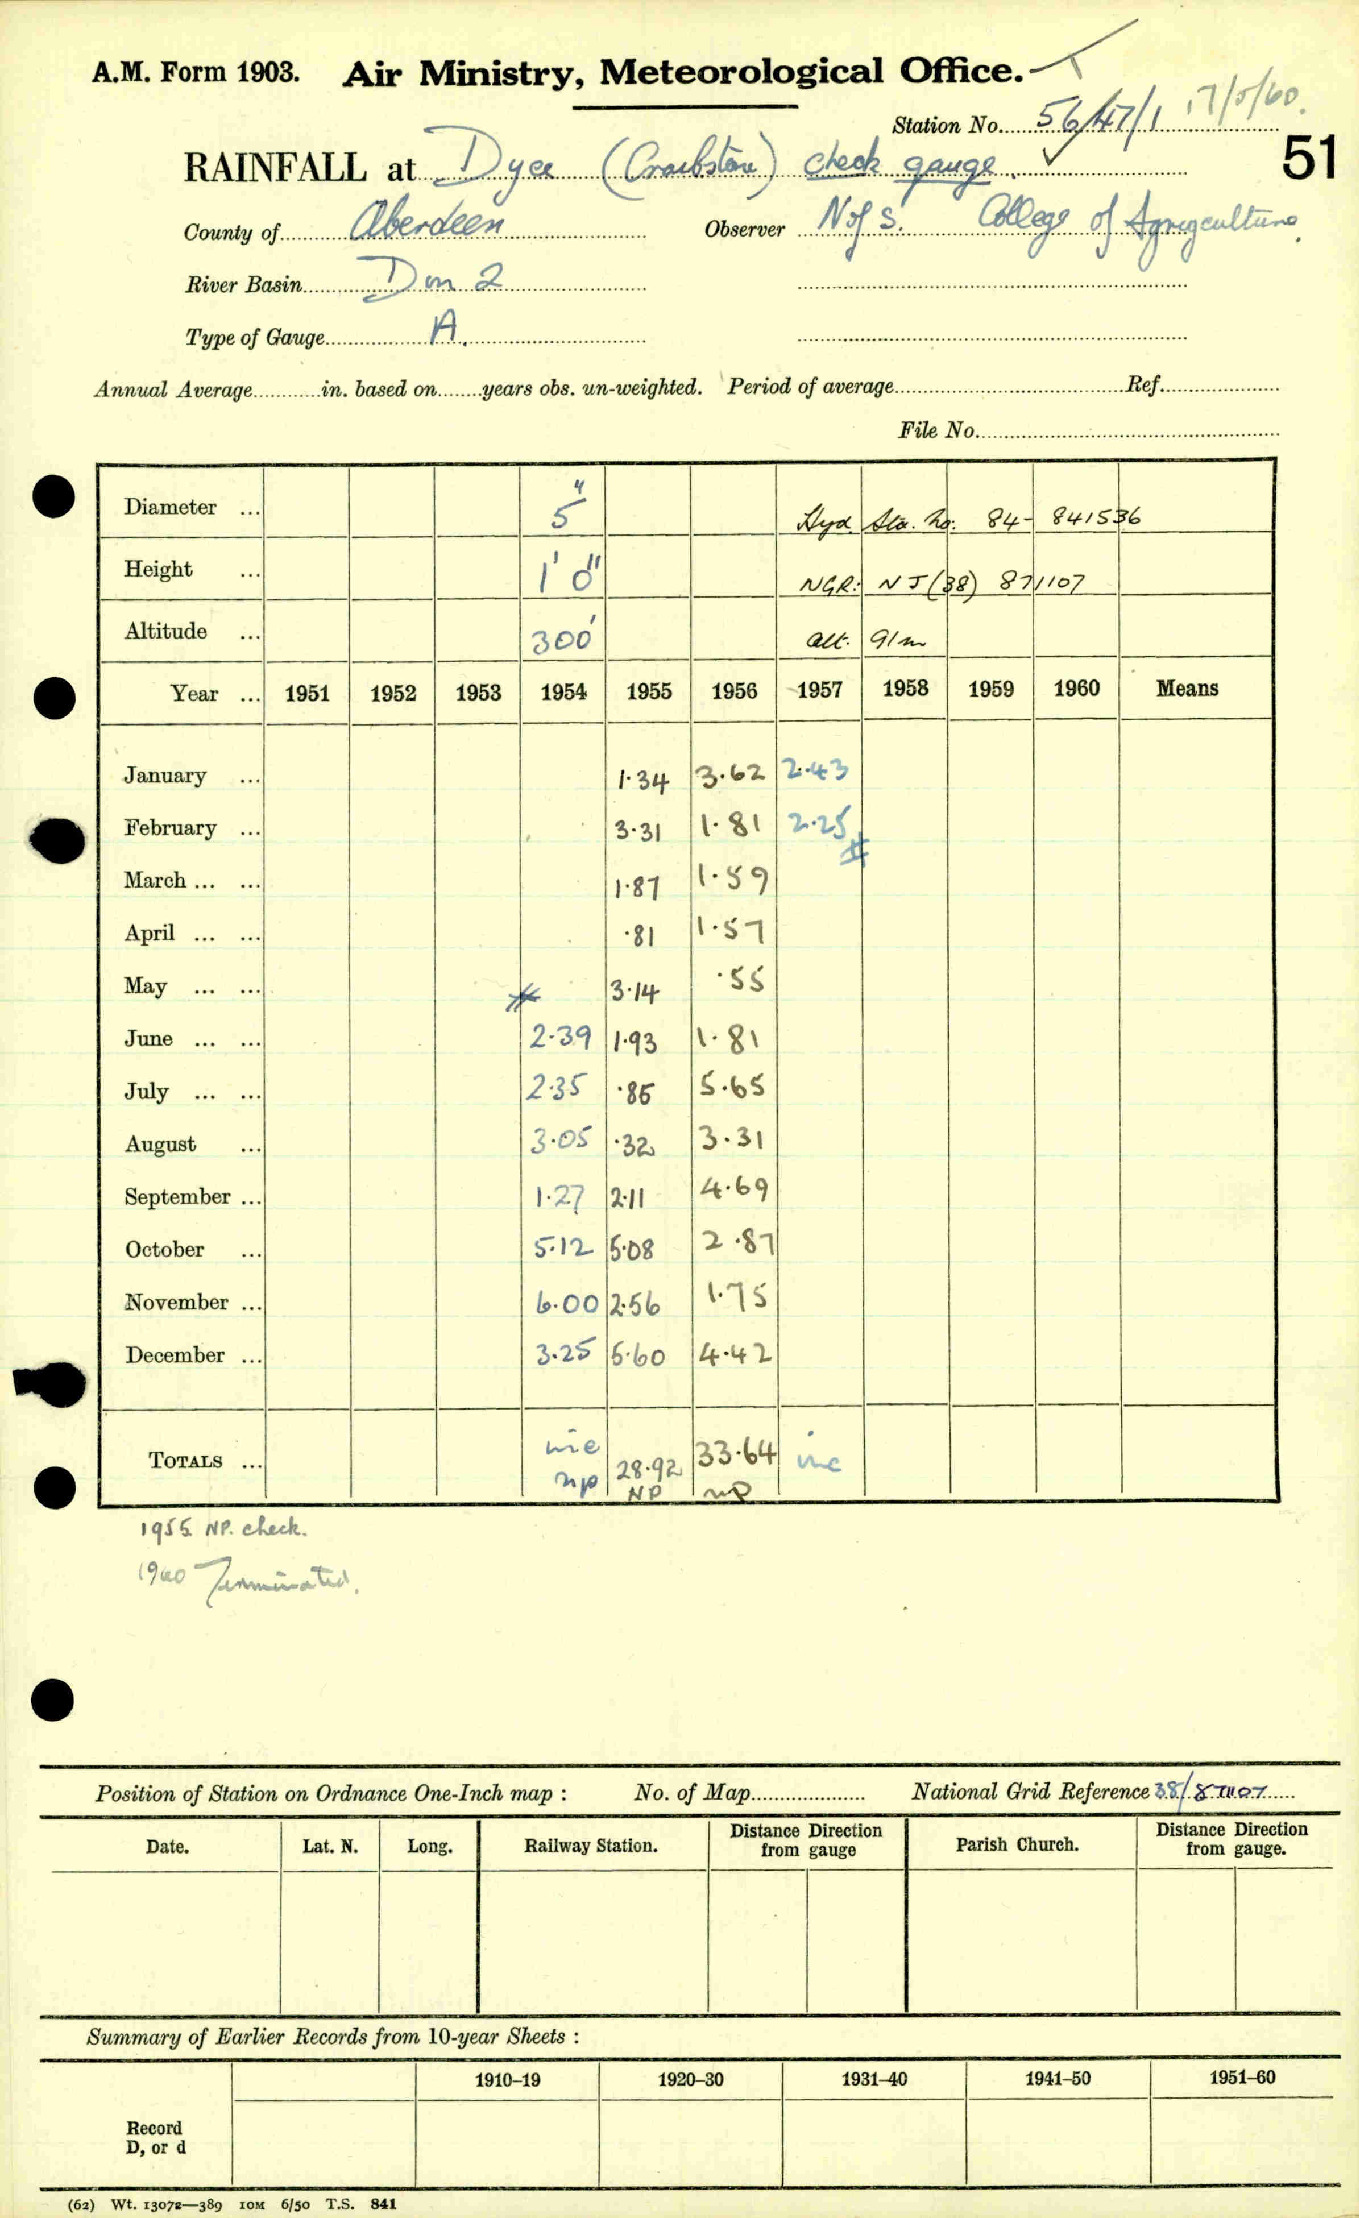 A.M. Form 1903. Air Ministry, Meteorological Office.
Station No. 56/47/1 17/5/60.
RAINFALL at Dyce (Craibstone) check gauge. 51
County of Aberdeen Observer N of S. College of Agriculture.
River Basin Don 2
Type of Gauge A.
Annual Average in. based on years obs. un-weighted. Period of average Ref.
File No.
Diameter ... 5" Hyd. Sta. No. 84- 841536
Height ... 1' 0" NGR: NJ (38) 871107
Altitude ... 300' alt. 91m
Year ... 1951 1952 1953 1954 1955 1956 1957 1958 1959 1960 Means
January ... 1.34 3.62 2.43
February ... 3.31 1.81 2.25
March ... ... 1.87 1.59
April ... ... .81 1.57
May ... ... 3.14 .55
June ... ... 2.39 1.93 1.81
July ... ... 2.35 .85 5.65
August ... 3.05 .32 3.31
September ... 1.27 2.11 4.69
October ... 5.12 5.08 2.87
November ... 6.00 2.56 1.75
December ... 3.25 5.60 4.42
TOTALS ... inc 28.92 33.64 inc
np NP np
1955 NP. check.
1960 Terminated.
Position of Station on Ordnance One-Inch map : No. of Map National Grid Reference 38/871107
Date. Lat. N. Long. Railway Station. Distance from Direction gauge Parish Church. Distance from Direction gauge.
Summary of Earlier Records from 10-year Sheets :
1910–19 1920–30 1931–40 1941–50 1951–60
Record
D, or d
(62) Wt. 13072—389 10M 6/50 T.S. 841